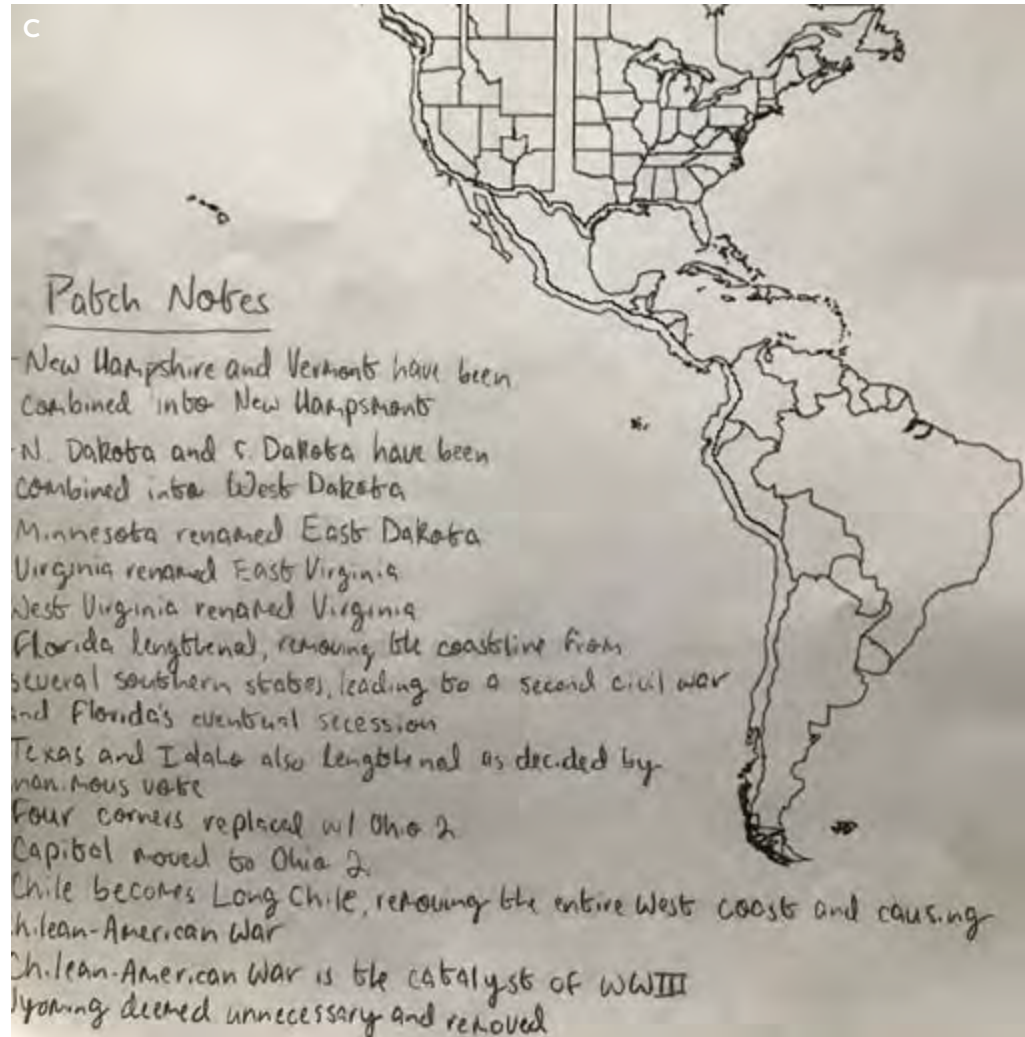 C
Patch Notes
-New Hampshire and Vermont have been
combined into New Hampsmont
-N. Dakota and S. Dakota have been
combined into West Dakota
Minnesota renamed East Dakota
Virginia renamed East Virginia
West Virginia renamed Virginia
Florida lengthened, removing the coastline from
several southern states, leading to a second civil war
and Florida's eventual secession
Texas and Idaho also lengthened as decided by
nanimous vote
Four corners replaced w/ Ohio 2
Capital moved to Ohio 2
Chile becomes Long Chile, removing the entire West coast and causing
hilean-American War
Chilean-American War is the catalyst of WWIII
Wyoming deemed unnecessary and removed